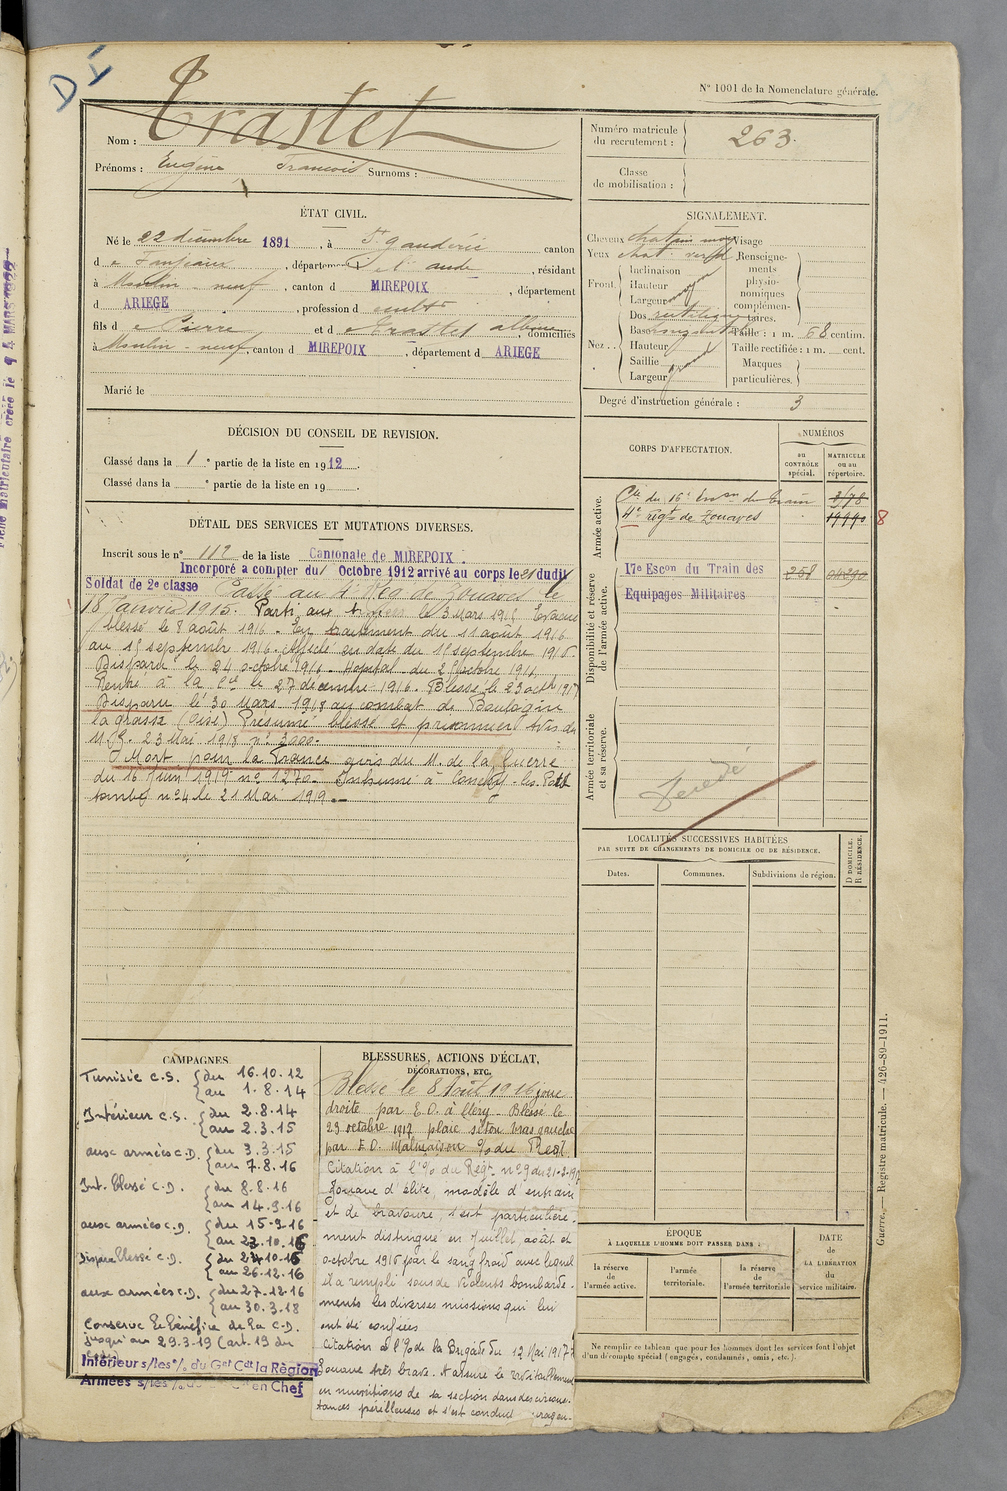 D I
N° 1001 de la Nomenclature générale.
Nom : Trastet
Prénoms : Eugène François Surnoms :
Numéro matricule du recrutement : 263.
Classe de mobilisation :
ÉTAT CIVIL.
Né le 22 décembre 1891, à St gaudéric canton
d e Fanjeaux, département de l'aude, résidant
à Moulin-neuf, canton d MIREPOIX, département
d ARIEGE, profession d cultr
fils d e Pierre et d e Trastet domiciliés
à Moulin-neuf, canton d MIREPOIX, département d ARIEGE
Marié le
SIGNALEMENT.
Cheveux chatain moy Visage
Yeux chat. verd
Front. Inclinaison
Hauteur moy
Largeur
Nez. Dos rectiligne
Base
Hauteur
Saillie
Largeur
Renseignements physionomiques complémentaires.
Taille : 1 m. 68 centim.
Taille rectifiée : 1 m. cent.
Marques particulières.
Degré d'instruction générale : 3
DÉCISION DU CONSEIL DE REVISION.
Classé dans la 1 e partie de la liste en 1912.
Classé dans la e partie de la liste en 19
DÉTAIL DES SERVICES ET MUTATIONS DIVERSES.
Inscrit sous le n° 112 de la liste Cantonale de MIREPOIX.
Incorporé a compter du 1 Octobre 1912 arrivé au corps le dudit
Soldat de 2e classe Passé au 4e Rég de Zouaves le
18 Janvier 1915. Parti aux le 3 Mars 1915 Evacué
blessé le 8 août 1916. En traitement du 11 août 1916
au 15 septembre 1916. Affecté en date du 1er septembre 1916.
Disparu le 24 octobre 1916. Hopital du octobre 1916
Rentré à la Cie le 27 décembre 1916. Blessé le 23 octb 1917
Disparu le 30 Mars 1918 au combat de Boulogne
la grasse (Oise) Présumé blessé et prisonnier Avis du
23 Mai 1918 n° 3000.
Mort pour la France avis du M. de la Guerre
du 16 juin 1919 n° 1270. Inhumé à Conchy-les-Pots
tombe n° 4 le 21 Mai 1919.
CORPS D'AFFECTATION.
NUMÉROS
au CONTRÔLE spécial.
MATRICULE ou au répertoire.
Armée active.
Cie du 16e Escon du Train 2/78
4e régt de Zouaves 19990 8
Disponibilité et réserve de l'armée active.
17e Escon du Train des 258 04290
Equipages Militaires
Armée territoriale et sa réserve.
LOCALITÉS SUCCESSIVES HABITÉES
PAR SUITE DE CHANGEMENTS DE DOMICILE OU DE RÉSIDENCE.
Dates.
Communes.
Subdivisions de région.
D DOMICILE.
R RÉSIDENCE.
CAMPAGNES
Tunisie C.S. du 16.10.12
au 1.8.14
Intérieur C.S. du 2.8.14
au 2.3.15
aux armées C.D. du 3.3.15
au 7.8.16
Int. blessé C.D. du 8.8.16
au 14.9.16
aux armées C.D. du 15.9.16
au 23.10.16
Disparu blessé C.D. du 24.10.16
au 26.12.16
aux armées C.D. du 27.12.16
au 30.3.18
Conserve le bénéfice de la C.D.
jusqu'au 29.3.19 (art. 19 du
Intérieur s/les o/. du Gal Cdt la Région
Armées s/les o/. du en Chef
BLESSURES, ACTIONS D'ÉCLAT,
DÉCORATIONS, ETC.
Blessé le 8 Août 1916 joue
droite par E.O. à Fleury. Blessé le
23 octobre 1917 plaie séton bras gauche
par E.O. Malmaison % du Regt
Citation à l'% du Régt n° 9 du
Zouave d'élite, modèle d'entrain
et de bravoure, s'est particulière-
ment distingué en Juillet, août et
octobre 1916 par le sang froid avec lequel
il a rempli sous de violents bombarde-
ments les diverses missions qui lui
ont été confiées
Citation à l'% de la Brigade du 12 Mai 1917
Zouave très brave. A assuré le ravitaillement
en munitions de sa section dans des circons-
tances périlleuses et s'est conduit
ÉPOQUE
À LAQUELLE L'HOMME DOIT PASSER DANS :
la réserve de l'armée active.
l'armée territoriale.
la réserve de l'armée territoriale
DATE de LA LIBÉRATION du service militaire.
Ne remplir ce tableau que pour les hommes dont les services font l'objet
d'un décompte spécial (engagés, condamnés, omis, etc.).
Guerre. — Registre matricule. — 426-89-1911.